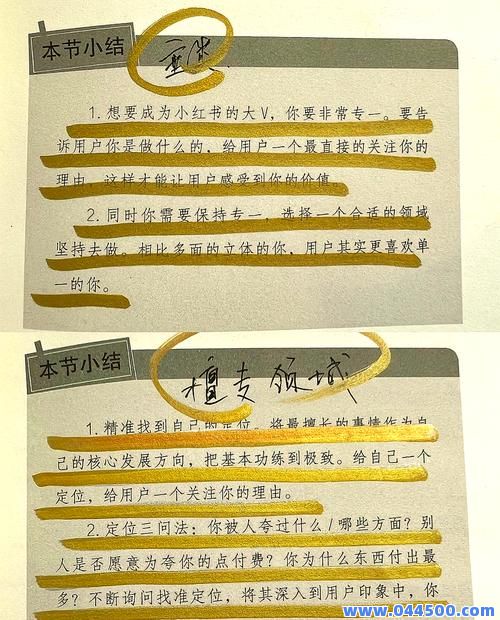 本节小结
重点
1. 想要成为小红书的大V，你要非常专一。要告
诉用户你是做什么的，给用户一个最直接的关注你的
理由，这样才能让用户感受到你的价值。
2. 同时你需要保持专一，选择一个合适的领域
坚持去做。相比多面的立体的你，用户其实更喜欢单
一的你。
本节小结
擅专领域
1. 精准找到自己的定位。将最擅长的事情作为自
己的核心发展方向，把基本功练到极致。给自己一个
定位，给用户一个关注你的理由。
2. 定位三问法：你被人夸过什么/哪些方面？别
人是否愿意为夸你的点付费？你为什么东西付出最
多？不断询问找准定位，将其深入到用户印象中，你
www.044500.com